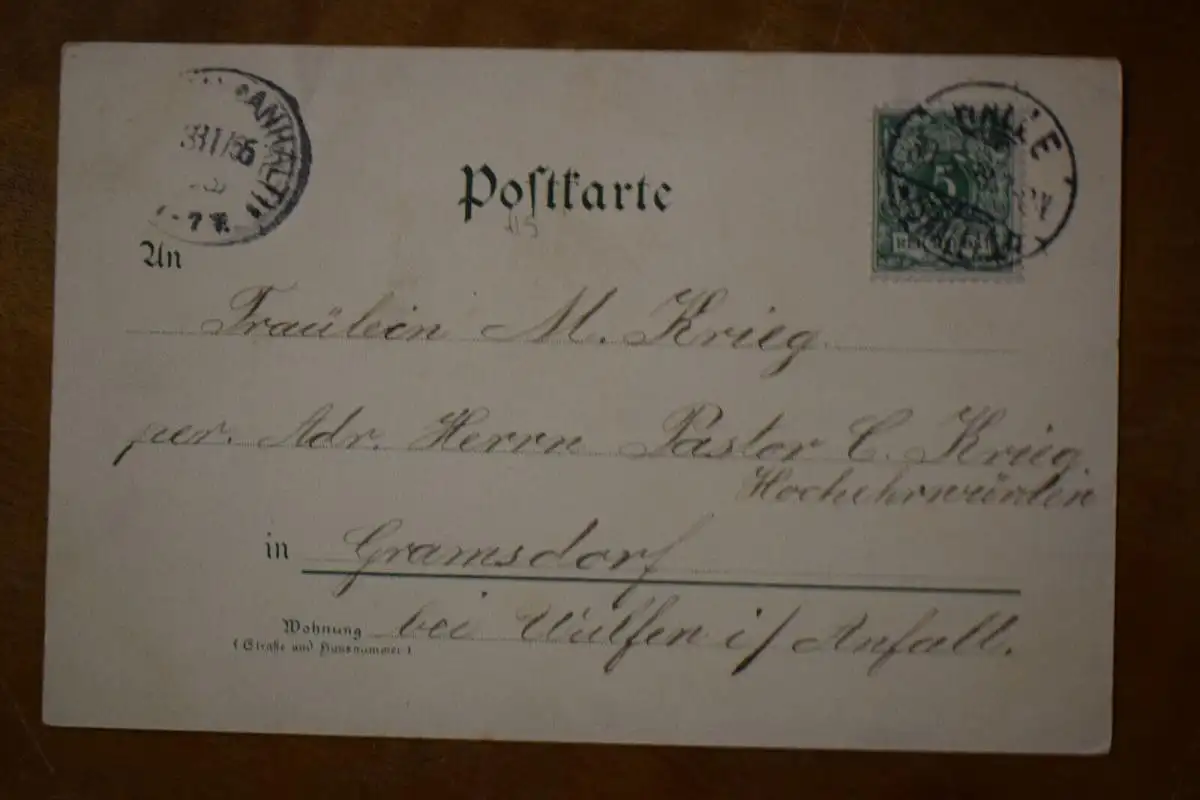 ANHALT
7 V.
HALLE
5
Postkarte
115
An
Fräulein M. Krieg.
per. Adr. Herrn Pastor C. Krieg.
Hochehrwürden
in Gramsdorf
Wohnung bei Wulfen i/ Anhalt.
(Straße und Hausnummer)